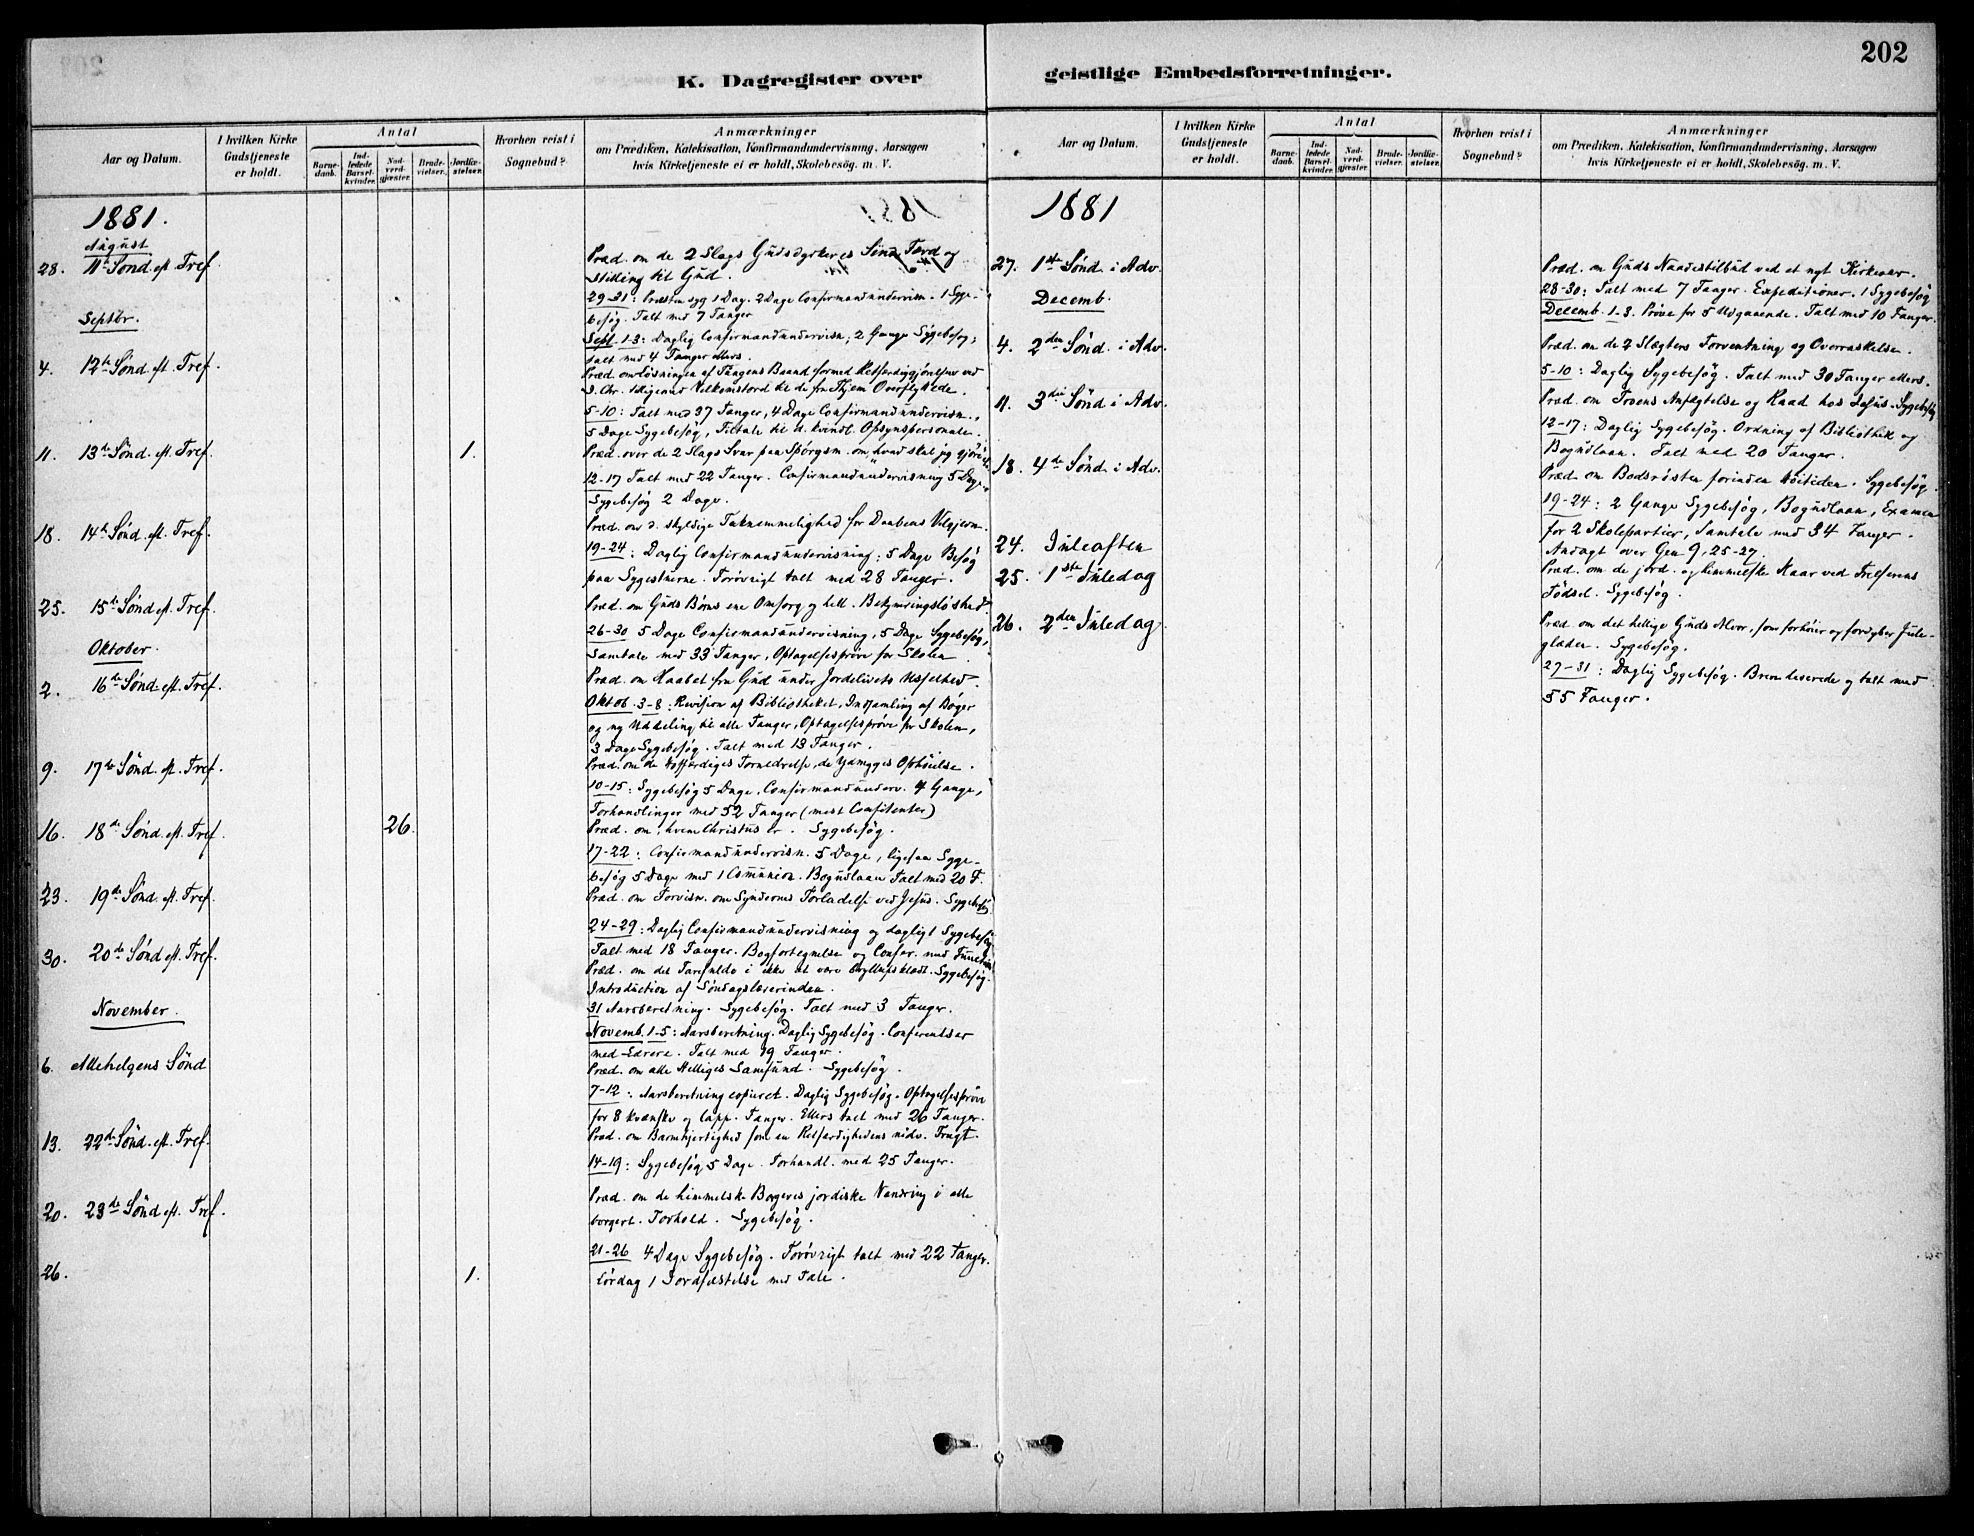 202
K. Dagregister over
geistlige Embedsforretninger.
Aar og Datum.
I hvilken Kirke Gudstjeneste er holdt.
Antal
Barnedaab.
Indledede Barselkvinder.
Nadverdgjæster.
Brudevielser.
Jordfæstelser.
Hvorhen reist i Sognebud?
Anmærkninger
om Prædiken, Katekisation, Konfirmandundervisning, Aarsagen
hvis Kirketjeneste ei er holdt, Skolebesög. m. V.
1881.
August
28. 11te Sønd. eft. Tref.
Præd. om de 2 Slags Gudsdyrkeres Sind, Færd og
Stilling til Gud.
29-31: Præsten syg 1 Dag. 2 Dage Confirmandundervisn. 1 Syge-
besøg. Talt med 7 Fanger
Septbr.
Sept. 1-3: Daglig Confirmandundervisn., 2 Gange Sygebesøg,
talt med 4 Fanger ellers.
4. 12te Sønd. eft. Tref.
Præd. om Løsningen af Tungens Baand formed Retfærdiggjørelsen ved
J. Chr. Velkomstord til de fra Overflyttede.
5-10: Talt med 37 Fanger, 4 Dage Confirmandundervisn.,
5 Dage Sygebesøg, Tiltale til d. kvindl. Opsynspersonale.
11. 13de Sønd. eft. Tref. 1.
Præd. over de 2 Slags Svar paa Spørgsm. om "hvad skal jeg gjøre
12-17 Talt med 22 Fanger. Confirmandundervisning 5 Dage,
Sygebesøg 2 Dage.
18. 14de Sønd. eft. Tref.
Præd. om d. skyldige Taknemmelighed for Daabens Velgjern.
19-24: Daglig Confirmandundervisning; 5 Dage Besøg
paa Sygestuerne. Forøvrigt talt med 28 Fanger.
25. 15de Sønd. eft. Tref.
Præd. om Guds Børns ene Omsorg og hell. Bekymringsløshed.
26-30 5 Dage Confirmandundervisning, 5 Dage Sygebesøg,
Samtale med 33 Fanger, Optagelsesprøve for Skolen
Oktober.
2. 16de Sønd. eft. Tref.
Præd. om Haabet fra Gud under Jordelivets Usselhed.
Oktob. 3-8: Revision af Bibliotheket, Indsamling af Bøger
og ny Uddeling til alle Fanger, Optagelsesprøve for Skolen,
3 Dage Sygebesøg. Talt med 13 Fanger.
9. 17de Sønd. eft. Tref.
Præd. om de Hoffærdiges Fornedrelse, de Ydmyges Ophøielse.
10-15: Sygebesøg 5 Dage, Confirmandunderv. 4 Gange,
Forhandlinger med 52 Fanger (mest Confitenter)
16. 18de Sønd. eft. Tref. 26.
Præd. om, hvem Christus er. Sygebesøg.
17-22: Confirmandundervisn. 5 Dage, ligesaa Syge-
besøg 5 Dage med 1 Communion. Bogudlaan Talt med 20 F.
23. 19de Sønd. eft. Tref.
Præd. om Forvisn. om Syndernes Forladelse ved Jesus. Sygebesøg
24-29: Daglig Confirmandundervisning og dagligt Sygebesøg
Talt med 18 Fanger. Bogfortegnelse og Confer. med
30. 20de Sønd. eft. Tref.
Præd. om det Farefulde i ikke at være bryllupsklædt. Sygebesøg.
Introduction af Søndagslærerinden.
31 Aarsberetning. Sygebesøg. Talt med 3 Fanger.
November.
Novemb. 1-5: Aarsberetning. Daglig Sygebesøg. Conferentser
med Lærere. Talt med 19 Fanger.
6. Allehelgens Sønd
Præd. om alle Helliges Samfund. Sygebesøg.
7-12: Aarsberetning copieret. Daglig Sygebesøg. Optagelsesprøve
for 8 kvænske og lapp. Fanger. Ellers talt med 26 Fanger.
13. 22de Sønd. eft. Tref.
Præd. om Barmhjertighed som en Retfærdighedens nødv. Frugt.
14-19: Sygebesøg 5 Dage. Forhandl. med 25 Fanger.
20. 23de Sønd eft. Tref.
Præd. om de himmelske Borgeres jordiske Vandring i alle
borgerl. Forhold. Sygebesøg.
21-26 4 Dage Sygebesøg. Forøvrigt talt med 22 Fanger.
26. 1.
Lørdag 1 Jordfæstelse med Tale.
Aar og Datum.
I hvilken Kirke Gudstjeneste er holdt.
Antal
Barnedaab.
Indledede Barselkvinder.
Nadverdgjæster.
Brudevielser.
Jordfæstelser.
Hvorhen reist i Sognebud?
Anmærkninger
om Prædiken, Katekisation, Konfirmandundervisning, Aarsagen
hvis Kirketjeneste ei er holdt, Skolebesög. m. V.
1881
27. 1ste Sønd. i Adv.
Præd. om Guds Naadestilbud ved et nyt Kirkeaar.
28-30: Talt med 7 Fanger. Expeditioner. 1 Sygebesøg
Decemb.
Decemb. 1-3. Prøve for 5 Udgaaende. Talt med 10 Fanger.
4. 2den Sønd. i Adv.
Præd. om de 2 Slægters Forventning og Overraskelse.
5-10: Daglig Sygebesøg. Talt med 30 Fanger ellers.
11. 3die Sønd i Adv.
Præd. om Troens Anfægtelse og Raad hos Jesus. Sygebesøg
12-17: Daglig Sygebesøg. Ordning af Bibliothek og
Bogudlaan. Talt med 20 Fanger.
18. 4de Sønd. i Adv.
Præd. om Bodsrøsten forinden Høitiden. Sygebesøg.
19-24: 2 Gange Sygebesøg, Bogudlaan, Examen
for 2 Skolepartier, Samtale med 34 Fanger.
24. Juleaften
Andagt over Gen 9, 25-27.
25. 1ste Juledag
Præd. om de jord. og himmelske Kaar ved Frelserens
Fødsel. Sygebesøg.
26. 2den Juledag
Præd. om det hellige Guds Alvor, som forhøier og fordyber Jule-
glæden. Sygebesøg.
27-31: Daglig Sygebesøg. Breve leverede og talt med
55 Fanger.